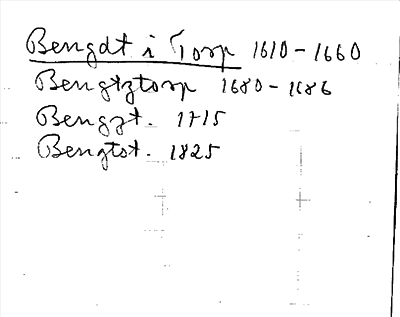 Bengdt i Torp 1610-1660
Bengtztorp 1680-1686
Bengzt. 1715
Bengtst. 1825